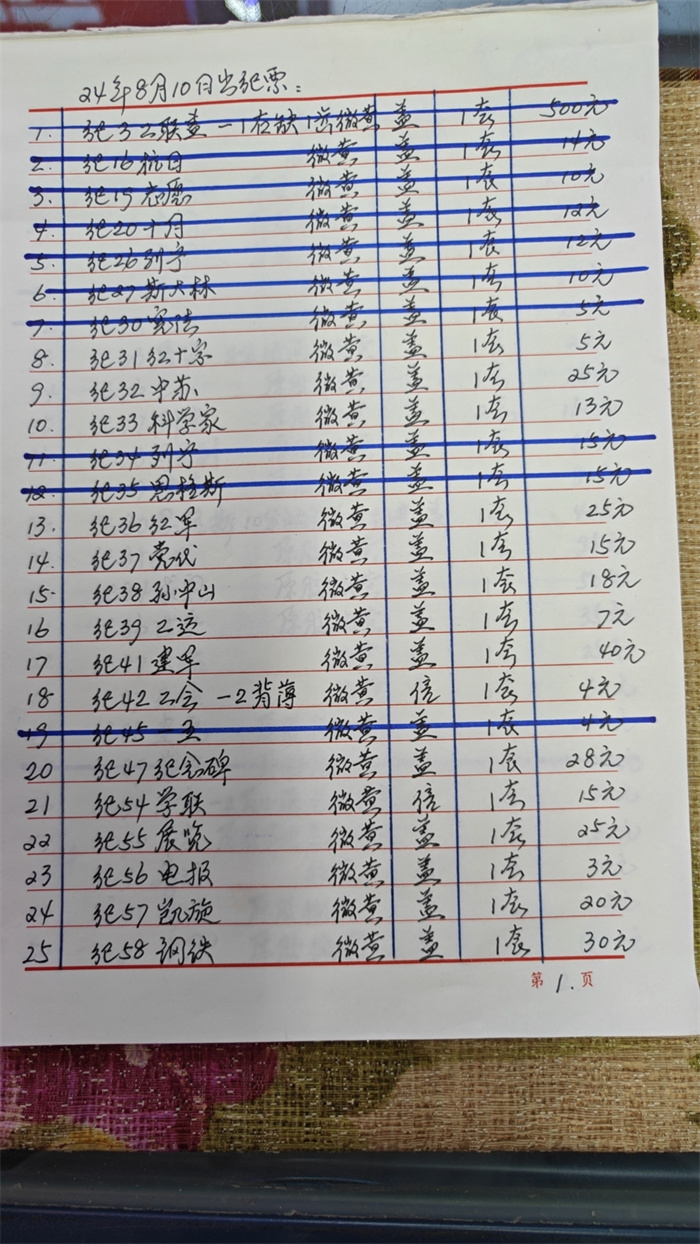 24年8月10日出纪票:
1. 纪3工联盖 一1右缺1齿微黄 盖 1套 500元
2. 纪16抗日 微黄 盖 1套 14元
3. 纪19志愿 微黄 盖 1套 10元
4. 纪20十月 微黄 盖 1套 12元
5. 纪26列宁 微黄 盖 1套 12元
6. 纪27斯大林 微黄 盖 1套 10元
7. 纪30宪法 微黄 盖 1套 5元
8. 纪31红十字 微黄 盖 1套 5元
9. 纪32中苏 微黄 盖 1套 25元
10. 纪33科学家 微黄 盖 1套 13元
11. 纪34列宁 微黄 盖 1套 15元
12. 纪35恩格斯 微黄 盖 1套 15元
13. 纪36红军 微黄 盖 1套 25元
14. 纪37党代 微黄 盖 1套 15元
15. 纪38孙中山 微黄 盖 1套 18元
16 纪39工运 微黄 盖 1套 7元
17 纪41建军 微黄 盖 1套 40元
18 纪42工会 一2背薄 微黄 信 1套 4元
19 纪45一五 微黄 盖 1套 4元
20 纪47纪念碑 微黄 盖 1套 28元
21 纪54学联 微黄 信 1套 15元
22 纪55展览 微黄 盖 1套 25元
23 纪56电报 微黄 盖 1套 3元
24 纪57凯旋 微黄 盖 1套 20元
25 纪58钢铁 微黄 盖 1套 30元
第 1. 页